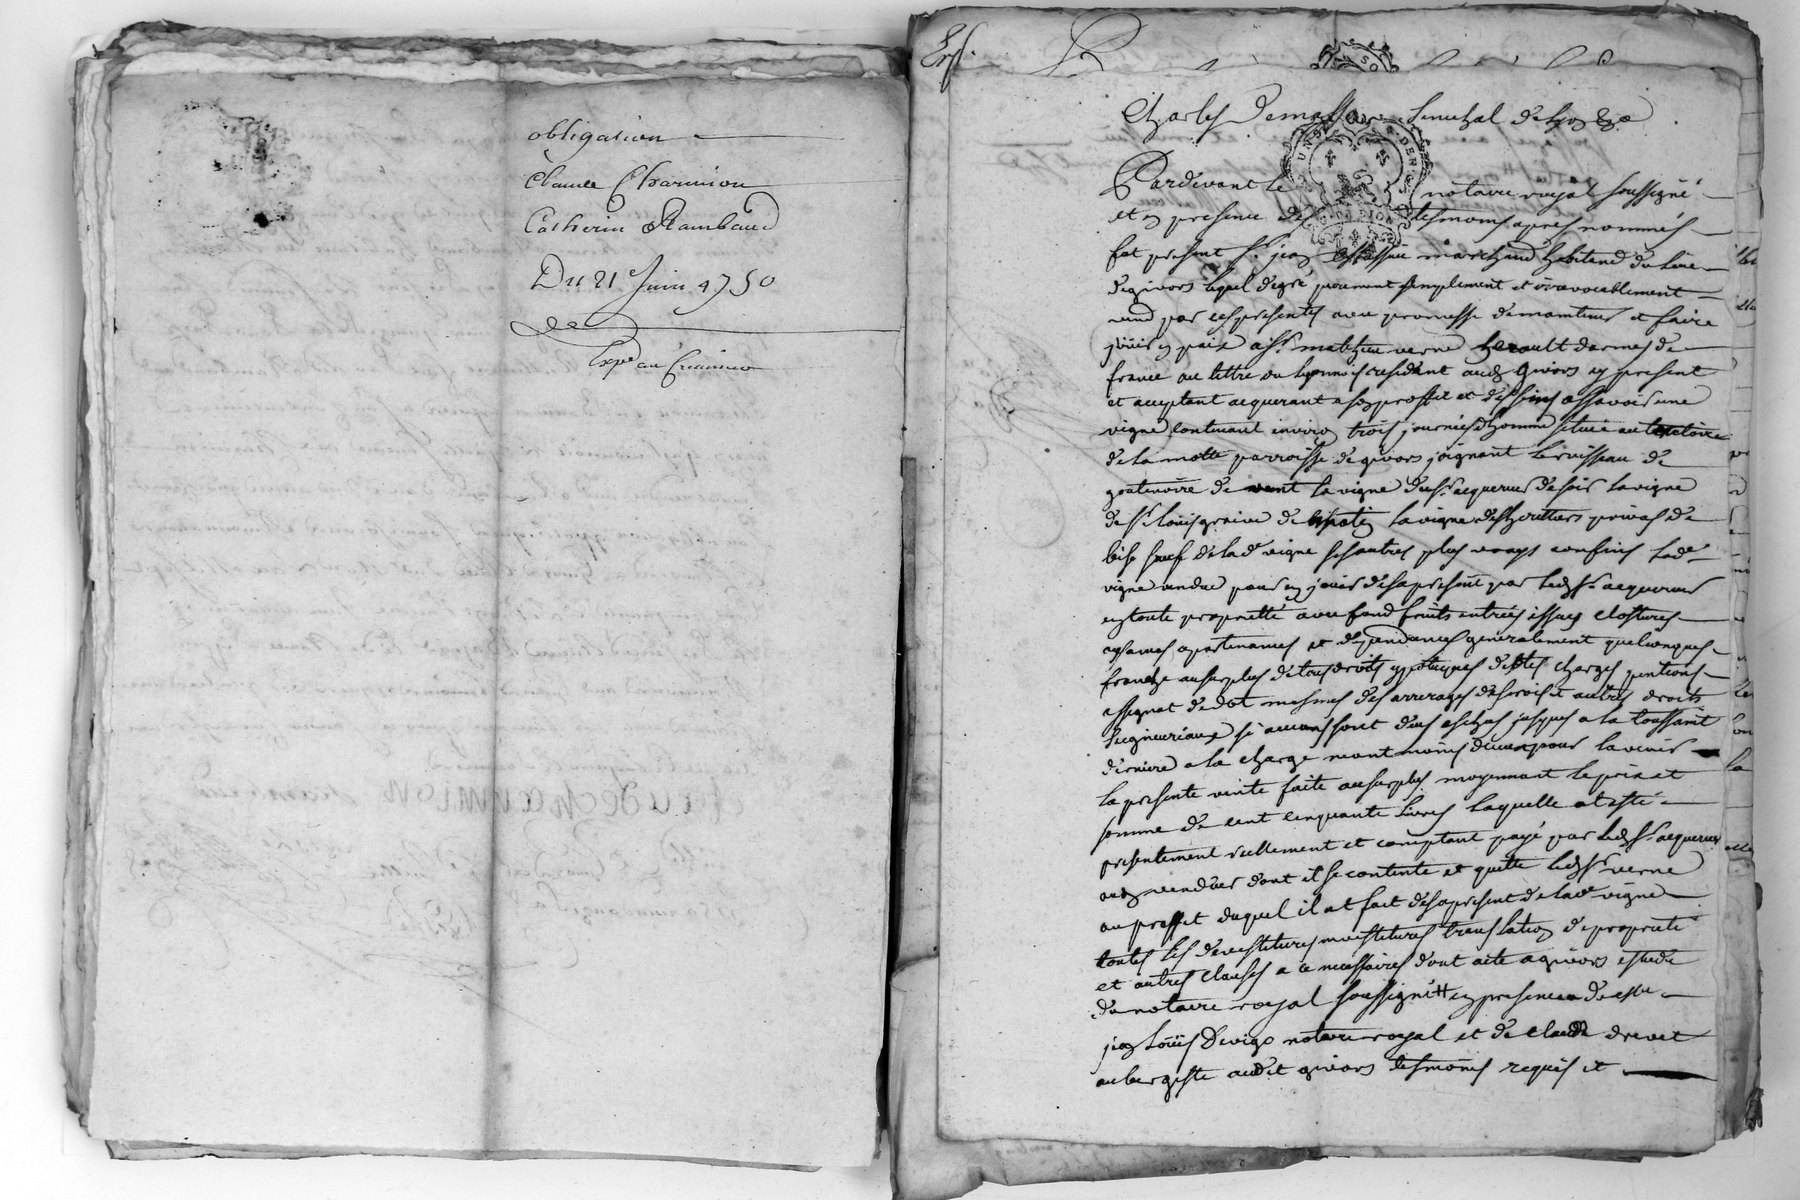 obligation
Claude Charmion
Catherin Rambaud
Du 21e Juin 1750
Expé au Créancier
Exp.
Charles Demasso Senechal de Lyon &a
Pardevant Le notaire royal soussigné
et en presence des tesmoins apres nommés
fut present Sr. jean marchand habitand du lieu
degivors lequel degré purement simplement et irrevocablement
vend par cespresentes avec promesse demaintenir et faire
joüir en paix a Sr. mathieu verne herault darmes de
france au tittre du Lyonnois residant audt givors icy present
et acceptant acquerant a son proffit et des siens assavoir une
vigne contenant environ trois journées dhomme située au territoire
de la motte parroisse de givors joignant le ruisseau de
goutenoire de vent la vigne dudt Sr. acquereur de soir la vigne
de Sr. Loüis graive de matin la vigne des heritiers privas de
bise sauf de lade vigne ses autres plus vrays confins lade
vigne vendue pour en jouir des apresent par ledt Sr. acquereur
en toute proprietté avec fond fruits entrées issues clostures
aysances apartenances et dependances generalement quelconques
franche au surplus de tous droits ypoteques dettes charges pentions
assignat de dot mesmes des arrerages de servis et autres droits
seigneuriaux si aucuns sont deus eschus jusques a la toussaint
derniere a la charge neantmoins diceux pour lavenir
la presente vente faite au surplus moyennant le prix et
somme de cent cinquante Livres laquelle at esté
presentement reellement et comptant payé par ledt Sr. acquereur
audt vendeur dont il se contente et quitte ledt Sr. verne
au proffit duquel il at fait des apresent de lade vigne
toutes les devestitures investitures translation de proprieté
et autres clauses a ce necessaires dont acte a givors estude
du notaire royal soussigné # en presence de
jean Loüis Devigo notaire royal et de claude drevet
aubergiste audit givors tesmoins requis et